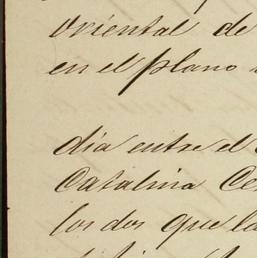 oriental de
en el plano
dia entre el
Catalina Ce
los dos que la